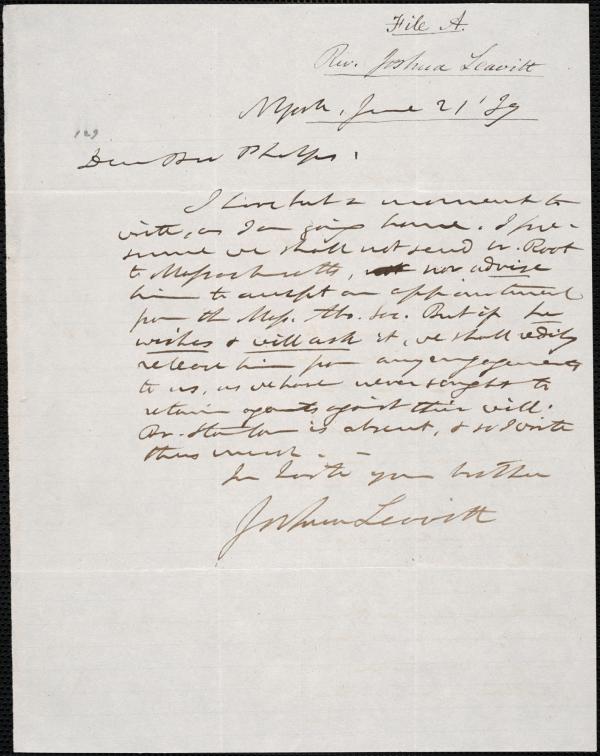 File A.
Rev. Joshua Leavitt
NYork, June 21 '39
129
Dear Bro Phelps,
I have but a moment to
write, as I am going home. I pre-
sume we shall not send Mr. Root
to Massachusetts, nor advise
him to accept an appointment
from the Mass. Abo. Soc. But if he
wishes & will ask it, we shall redily
release him from any engagements
to us, as we have never sought to
retain agents against their will.
Br. Stanton is absent, & so I write
thus much. -
In haste your brother
Joshua Leavitt